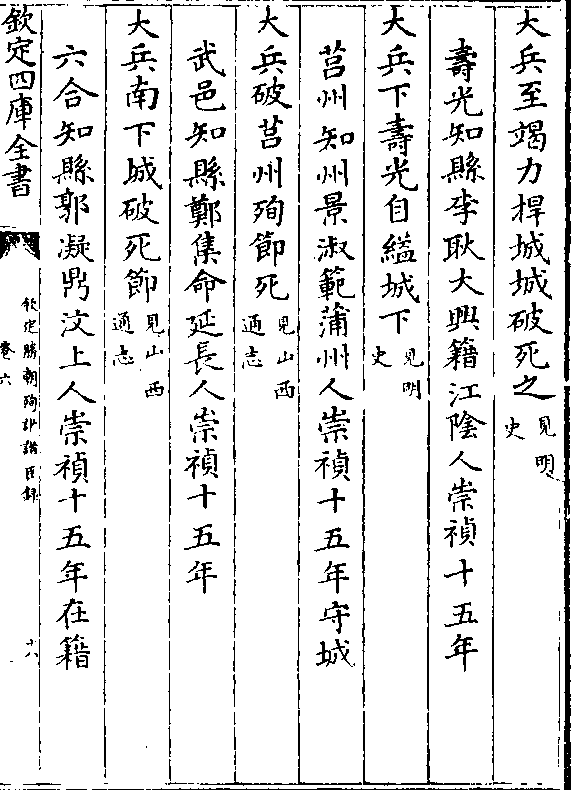 大兵至竭力捍城城破死之見明史
壽光知縣李耿大興籍江陰人崇禎十五年
大兵下壽光自縊城下見明史
莒州知州景淑範蒲州人崇禎十五年守城
大兵破莒州殉節死見山西通志
武邑知縣鄭集命延長人崇禎十五年
大兵南下城破死節見山西通志
六合知縣郭凝鼎汶上人崇禎十五年在籍
欽定四庫全書
欽定勝朝殉節諸臣錄
卷六
十六